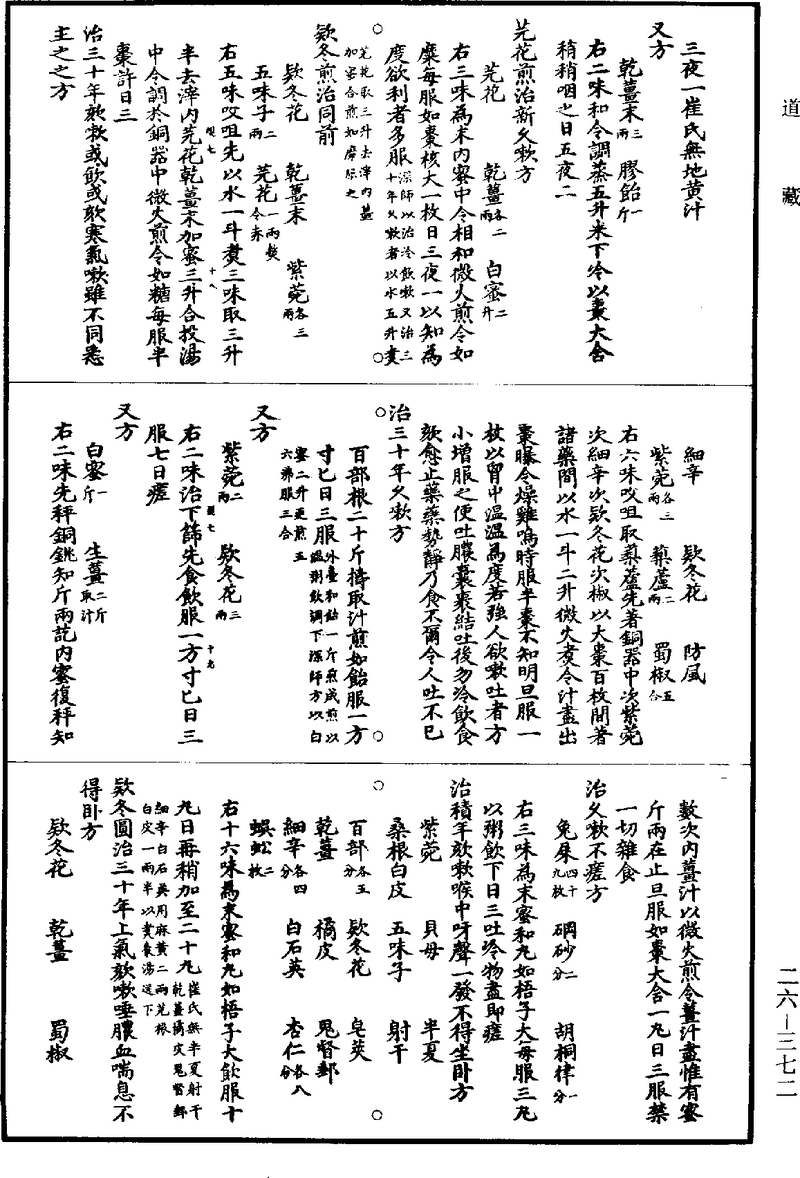 道藏
三夜一崔氏無地黄汁
又方
乾薑末三兩 膠飴一斤
右二味和令調蒸五升米下冷以棗大含
稍稍咽之日五夜二
芫花煎治新久嗽方
芫花 乾薑各二兩 白蜜二升
右三味為末內蜜中令相和微火煎令如
糜每服如棗核大一枚日三夜一以知為
度欲利者多服深師以治冷飲嗽又治三十年久嗽者以水五升煮
芫花取三升去滓內薑加蜜合煎如糜服之
欵冬煎治同前
欵冬花 乾薑末 紫菀各三兩
五味子二兩 芫花一兩熬令赤
右五味㕮咀先以水一斗煑三味取三升
半去滓內芫花乾薑末加蜜三升合投湯
中令調於銅器中微火煎令如糖每服半
棗許日三
治三十年欬嗽或飲或欬寒氣嗽雖不同悉
主之之方
細辛 欵冬花 防風
紫菀各三兩 藜蘆二兩 蜀椒五合
右六味㕮咀取藜蘆先著銅器中次紫菀
次細辛次欵冬花次椒以大棗百枚間著
諸藥間以水一斗二升微火煮令汁盡出
棗曝令燥雞鳴時服半棗不知明旦服一
枚以胃中溫溫為度若強人欲嗽吐者方
小增服之便吐膿囊裹結吐後勿冷飲食
欬愈止藥藥勢靜乃食不爾令人吐不已
治三十年久嗽方
百部根二十斤擣取汁煎如飴服一方
寸匕日三服外臺和飴一斤煎成煎以溫粥飲調下深師方以白
蜜二升更煎五六沸服三合
又方
紫菀二兩 欵冬花三兩
右二味治下篩先食飲服一方寸匕日三
服七日瘥
又方
白蜜一斤 生薑二斤取汁
右二味先秤銅銚知斤兩訖內蜜復秤知
數次內薑汁以微火煎令薑汁盡惟有蜜
斤兩在止旦服如棗大含一丸日三服禁
一切雜食
治久嗽不瘥方
兔屎四十九枚 硇砂二分 胡桐律一分
右三味為末蜜和丸如梧子大每服三丸
以粥飲下日三吐冷物盡即瘥
治積年欬嗽喉中呀聲一發不得坐卧方
紫菀 貝母 半夏
桑根白皮 五味子 射干
百部各五分 欵冬花 皂莢
乾薑 橘皮 鬼督郵
細辛各四分 白石英 杏仁各八分
蜈蚣二枚
右十六味為末蜜和丸如梧子大飲服十
丸日再稍加至二十丸崔氏無半夏射干乾薑橘皮鬼督郵
細辛白石英用麻黃二兩芫根白皮一兩半以煑棗湯送下
欵冬圓治三十年上氣欬嗽唾膿血喘息不
得卧方
欵冬花 乾薑 蜀椒
二六—三七二